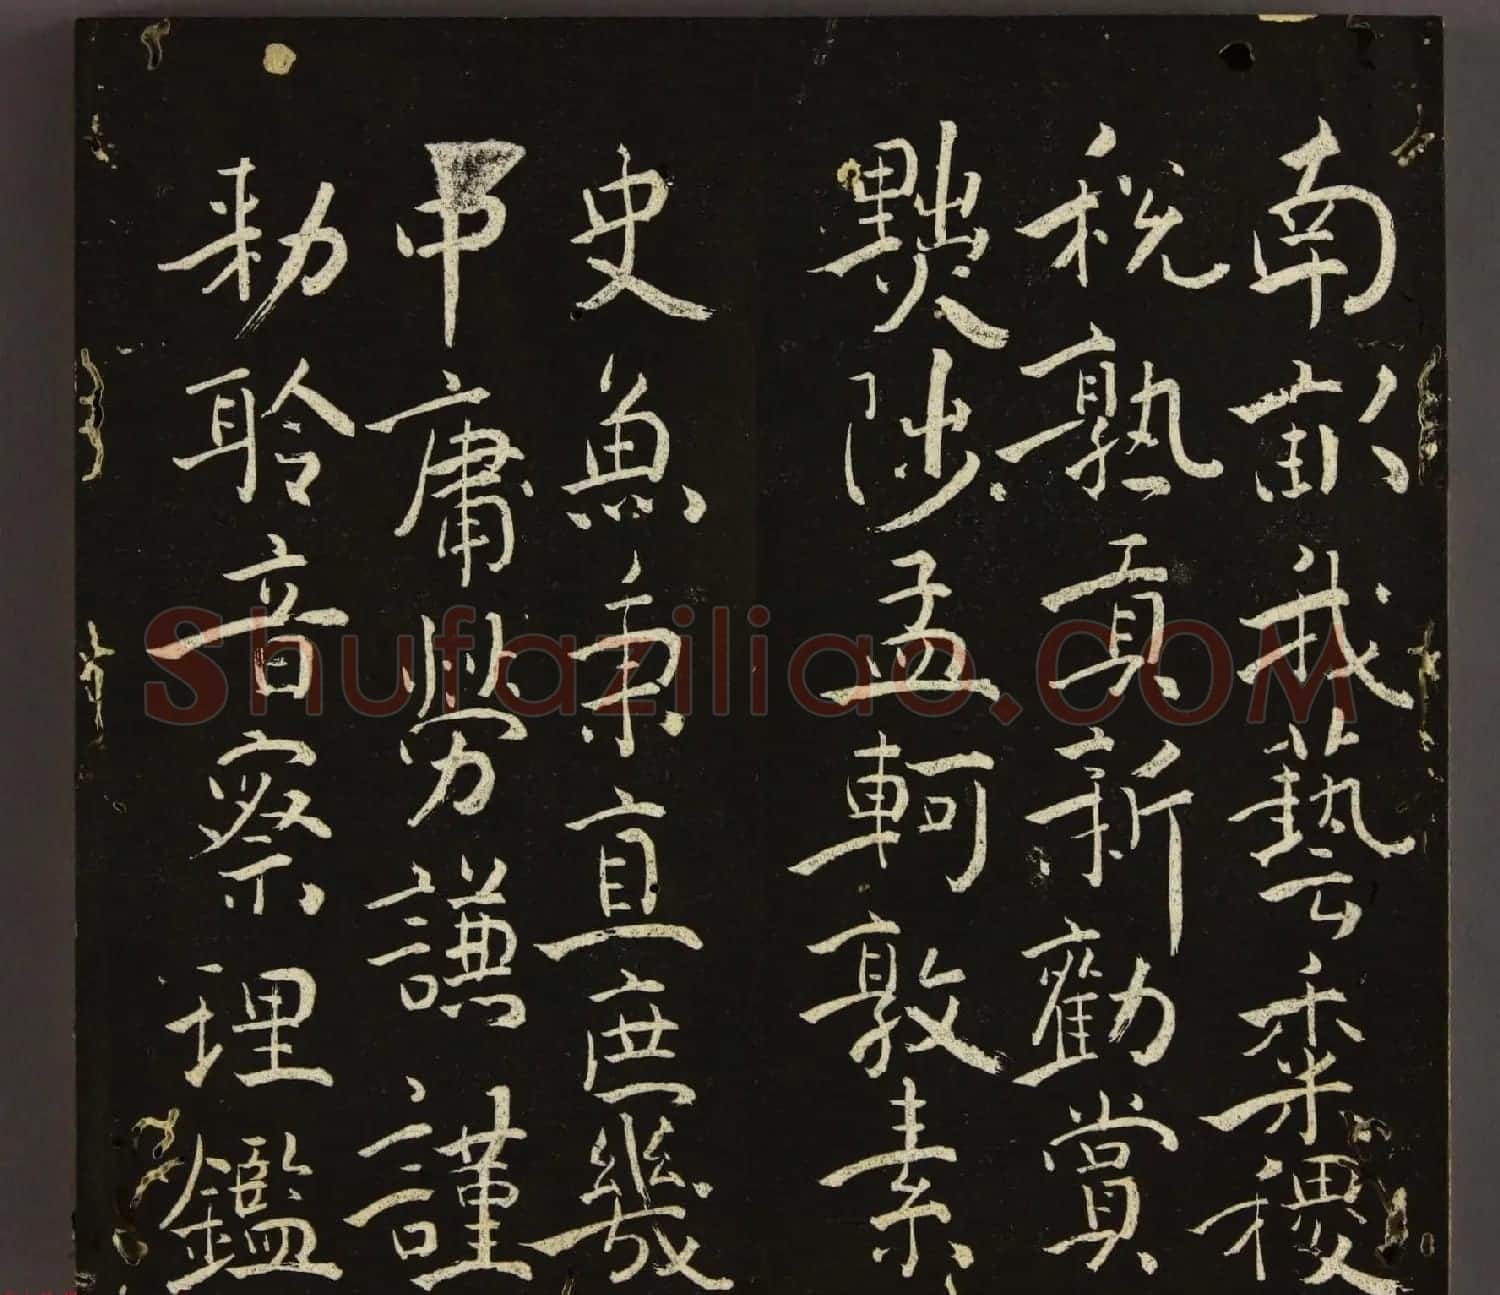 南畝我藝黍稷
稅熟貢新勸賞
黜陟孟軻敦素
史魚秉直庶幾
中庸勞謙謹
勑聆音察理鑑
Shufaziliao.COM